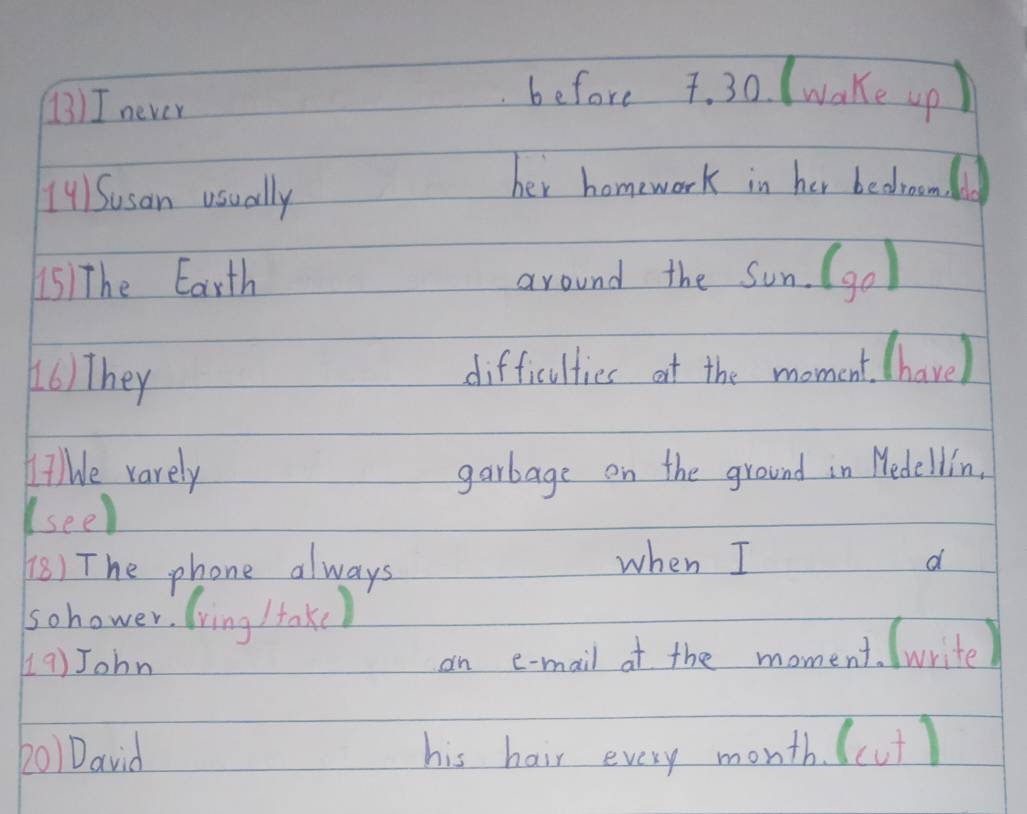 13) I never before 7.30. (wake up)
14) Susan usually her homework in her bedroom. (do)
15) The Earth around the Sun. (go)
16) They difficulties at the moment. (have)
17) We rarely garbage on the ground in Medellín.
(see)
18) The phone always when I a
sohower. (ring/take)
19) John an e-mail at the moment. (write)
20) David his hair every month. (cut)